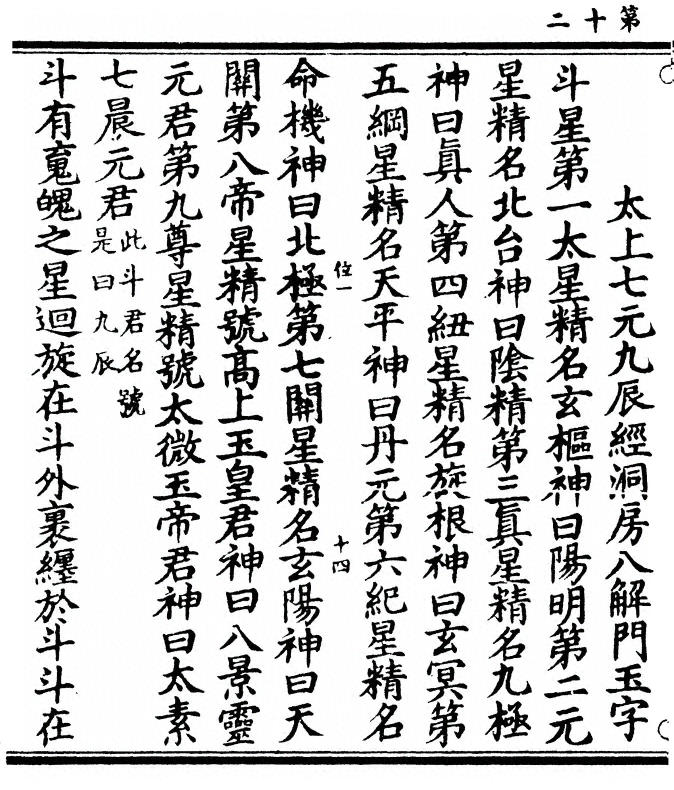 第十二
太上七元九辰經洞房八解門玉字
斗星第一太星精名玄樞神曰陽明第二元
星精名北台神曰陰精第三眞星精名九極
神曰眞人第四紐星精名旋根神曰玄冥第
五綱星精名天平神曰丹元第六紀星精名
位一
十四
命機神曰北極第七關星精名玄陽神曰天
關第八帝星精號高上玉皇君神曰八景靈
元君第九尊星精號太微玉帝君神曰太素
七晨元君此斗君名號
是曰九辰
斗有魂魄之星迴旋在斗外裹纏於斗斗在